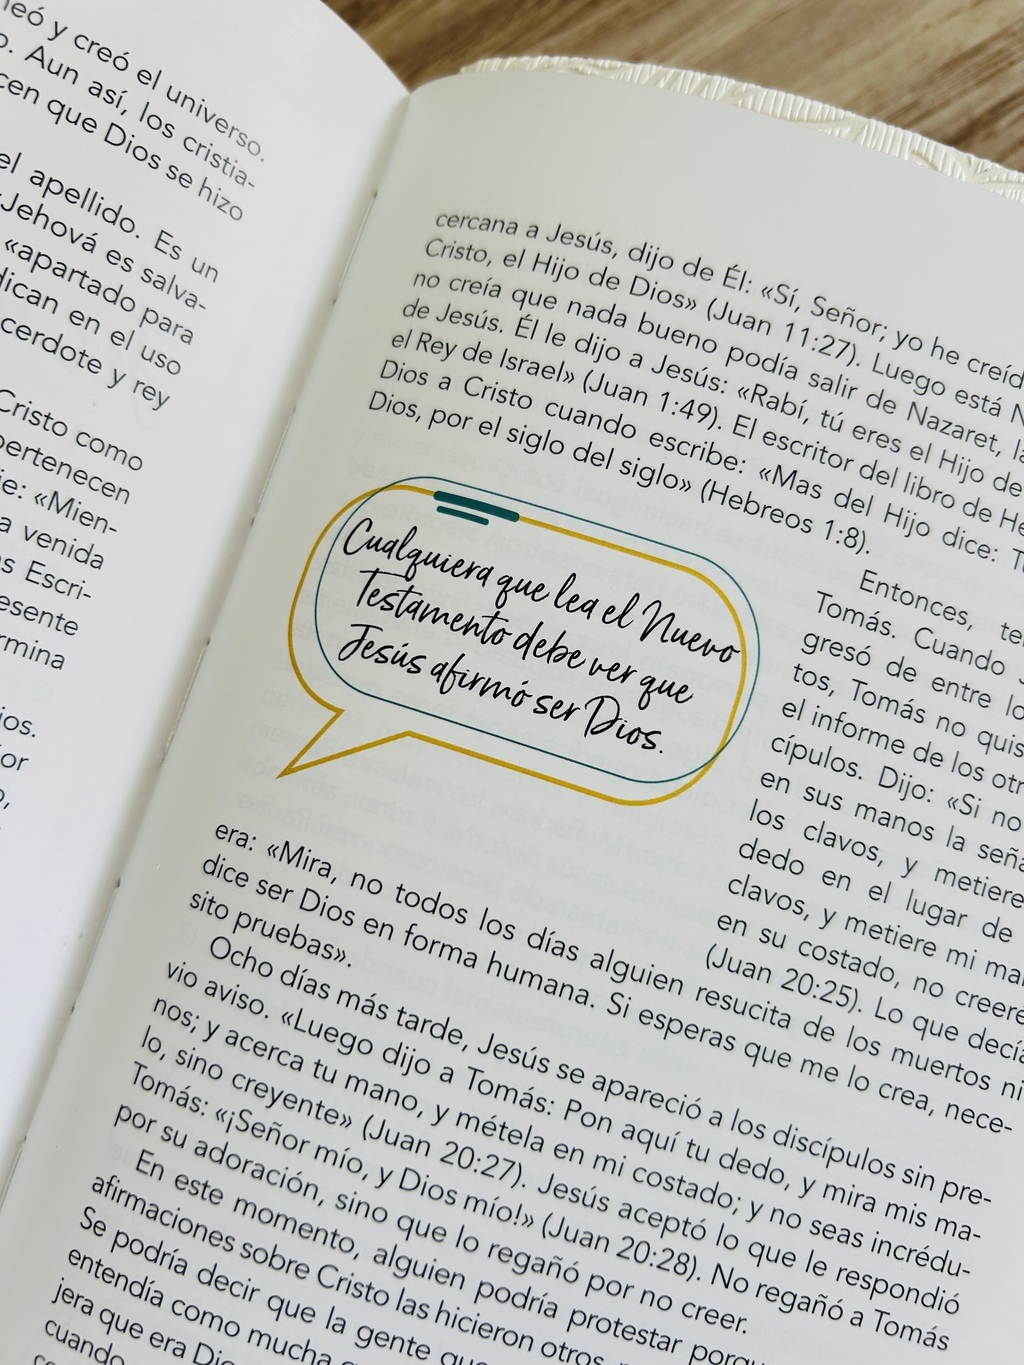 neó y creó el universo.
o. Aun así, los cristia-
cen que Dios se hizo
el apellido. Es un
«Jehová es salva-
«apartado para
dican en el uso
cerdote y rey
Cristo como
pertenecen
ie: «Mien-
a venida
as Escri-
esente
rmina
ios.
or
cercana a Jesús, dijo de Él: «Sí, Señor; yo he creíd
Cristo, el Hijo de Dios» (Juan 11:27). Luego está N
no creía que nada bueno podía salir de Nazaret, la
de Jesús. Él le dijo a Jesús: «Rabí, tú eres el Hijo de
el Rey de Israel» (Juan 1:49). El escritor del libro de He
Dios a Cristo cuando escribe: «Mas del Hijo dice: T
Dios, por el siglo del siglo» (Hebreos 1:8).
Cualquiera que lea el Nuevo
Testamento debe ver que
Jesús afirmó ser Dios.
Entonces, te
Tomás. Cuando J
gresó de entre lo
tos, Tomás no quis
el informe de los otr
cípulos. Dijo: «Si no
en sus manos la seña
los clavos, y metiere
dedo en el lugar de
clavos, y metiere mi ma
en su costado, no creeré
(Juan 20:25). Lo que decía
era: «Mira, no todos los días alguien resucita de los muertos ni
dice ser Dios en forma humana. Si esperas que me lo crea, nece-
sito pruebas».
Ocho días más tarde, Jesús se apareció a los discípulos sin pre-
vio aviso. «Luego dijo a Tomás: Pon aquí tu dedo, y mira mis ma-
nos; y acerca tu mano, y métela en mi costado; y no seas incrédu-
lo, sino creyente» (Juan 20:27). Jesús aceptó lo que le respondió
Tomás: «¡Señor mío, y Dios mío!» (Juan 20:28). No regañó a Tomás
por su adoración, sino que lo regañó por no creer.
En este momento, alguien podría protestar porqu
afirmaciones sobre Cristo las hicieron otros
Se podría decir que la gente que
entendía como mucha
jera que era Dio
cuando